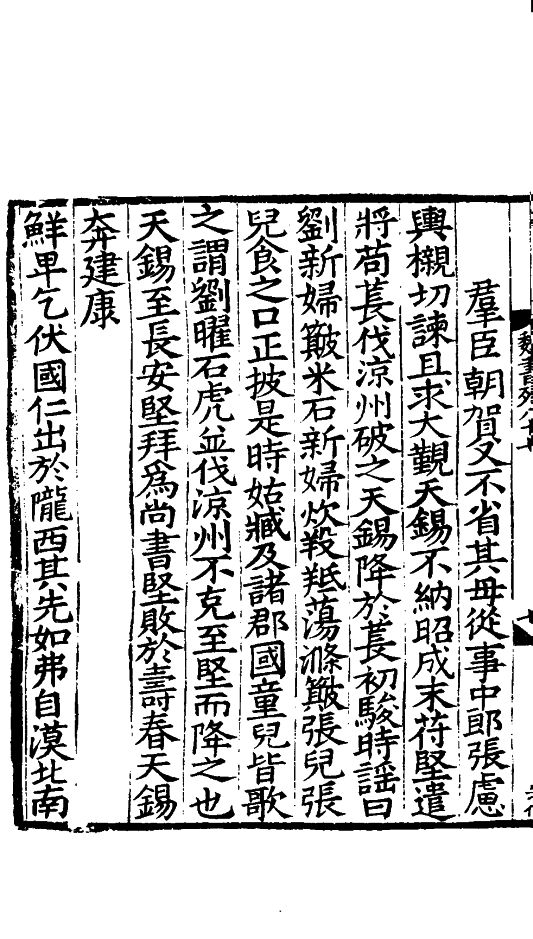 羣臣朝賀又不省其母從事中郎張慮
輿櫬切諫且求大覲天錫不納昭成末苻堅遣
將苟萇伐涼州破之天錫降於萇初駿時謡曰
劉新婦簸米石新婦炊羖羝蕩滌簸張兒張
兒食之口正披是時姑臧及諸郡國童兒皆歌
之謂劉曜石虎並伐涼州不克至堅而降之也
天錫至長安堅拜爲尚書堅敗於壽春天錫
奔建康
鮮卑乞伏國仁出於隴西其先如弗自漠北南